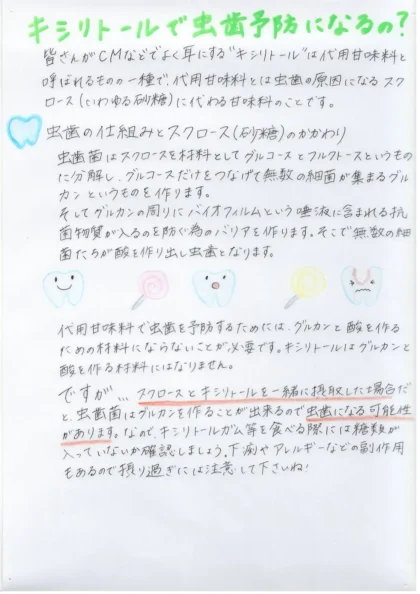 キシリトールで虫歯予防になるの?
皆さんがCMなどでよく耳にする"キシリトール"は代用甘味料と
呼ばれるものの一種で、代用甘味料とは虫歯の原因になるスク
ロース(いわゆる砂糖)に代わる甘味料のことです。
虫歯の仕組みとスクロース(砂糖)のかかわり
虫歯菌はスクロースを材料としてグルコースとフルクトースというもの
に分解し、グルコースだけをつなげて無数の細菌が集まるグル
カンというものを作ります。
そしてグルカンの周りにバイオフィルムという唾液に含まれる抗
菌物質が入るのを防ぐ為のバリアを作ります。そこで無数の細
菌たちが酸を作り出し虫歯となります。
代用甘味料で虫歯を予防するためには、グルカンと酸を作る
ための材料にならないことが必要です。キシリトールはグルカンと
酸を作る材料にはなりません。
ですが…スクロースとキシリトールを一緒に摂取した場合だ
と、虫歯菌はグルカンを作ることが出来るので虫歯になる可能性
があります。なので、キシリトールガム等を食べる際には糖類が
入っていないか確認しましょう。下痢やアレルギーなどの副作用
もあるので摂り過ぎには注意して下さいね!